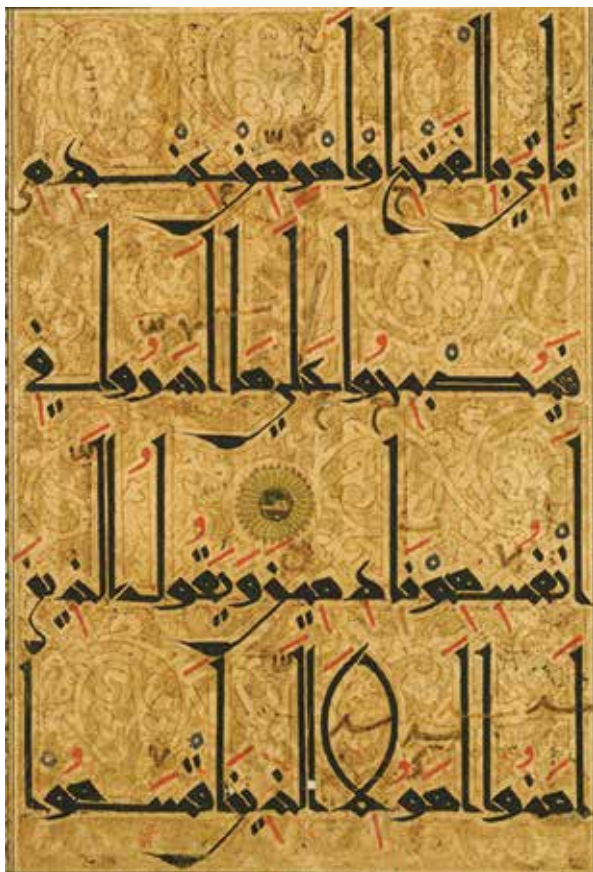 ياتي بالفتح او امر من عنده
فيصبحوا علي ما اسروا في
انفسهم نادمين ويقول الذين
امنوا اهولا الذين اقسموا